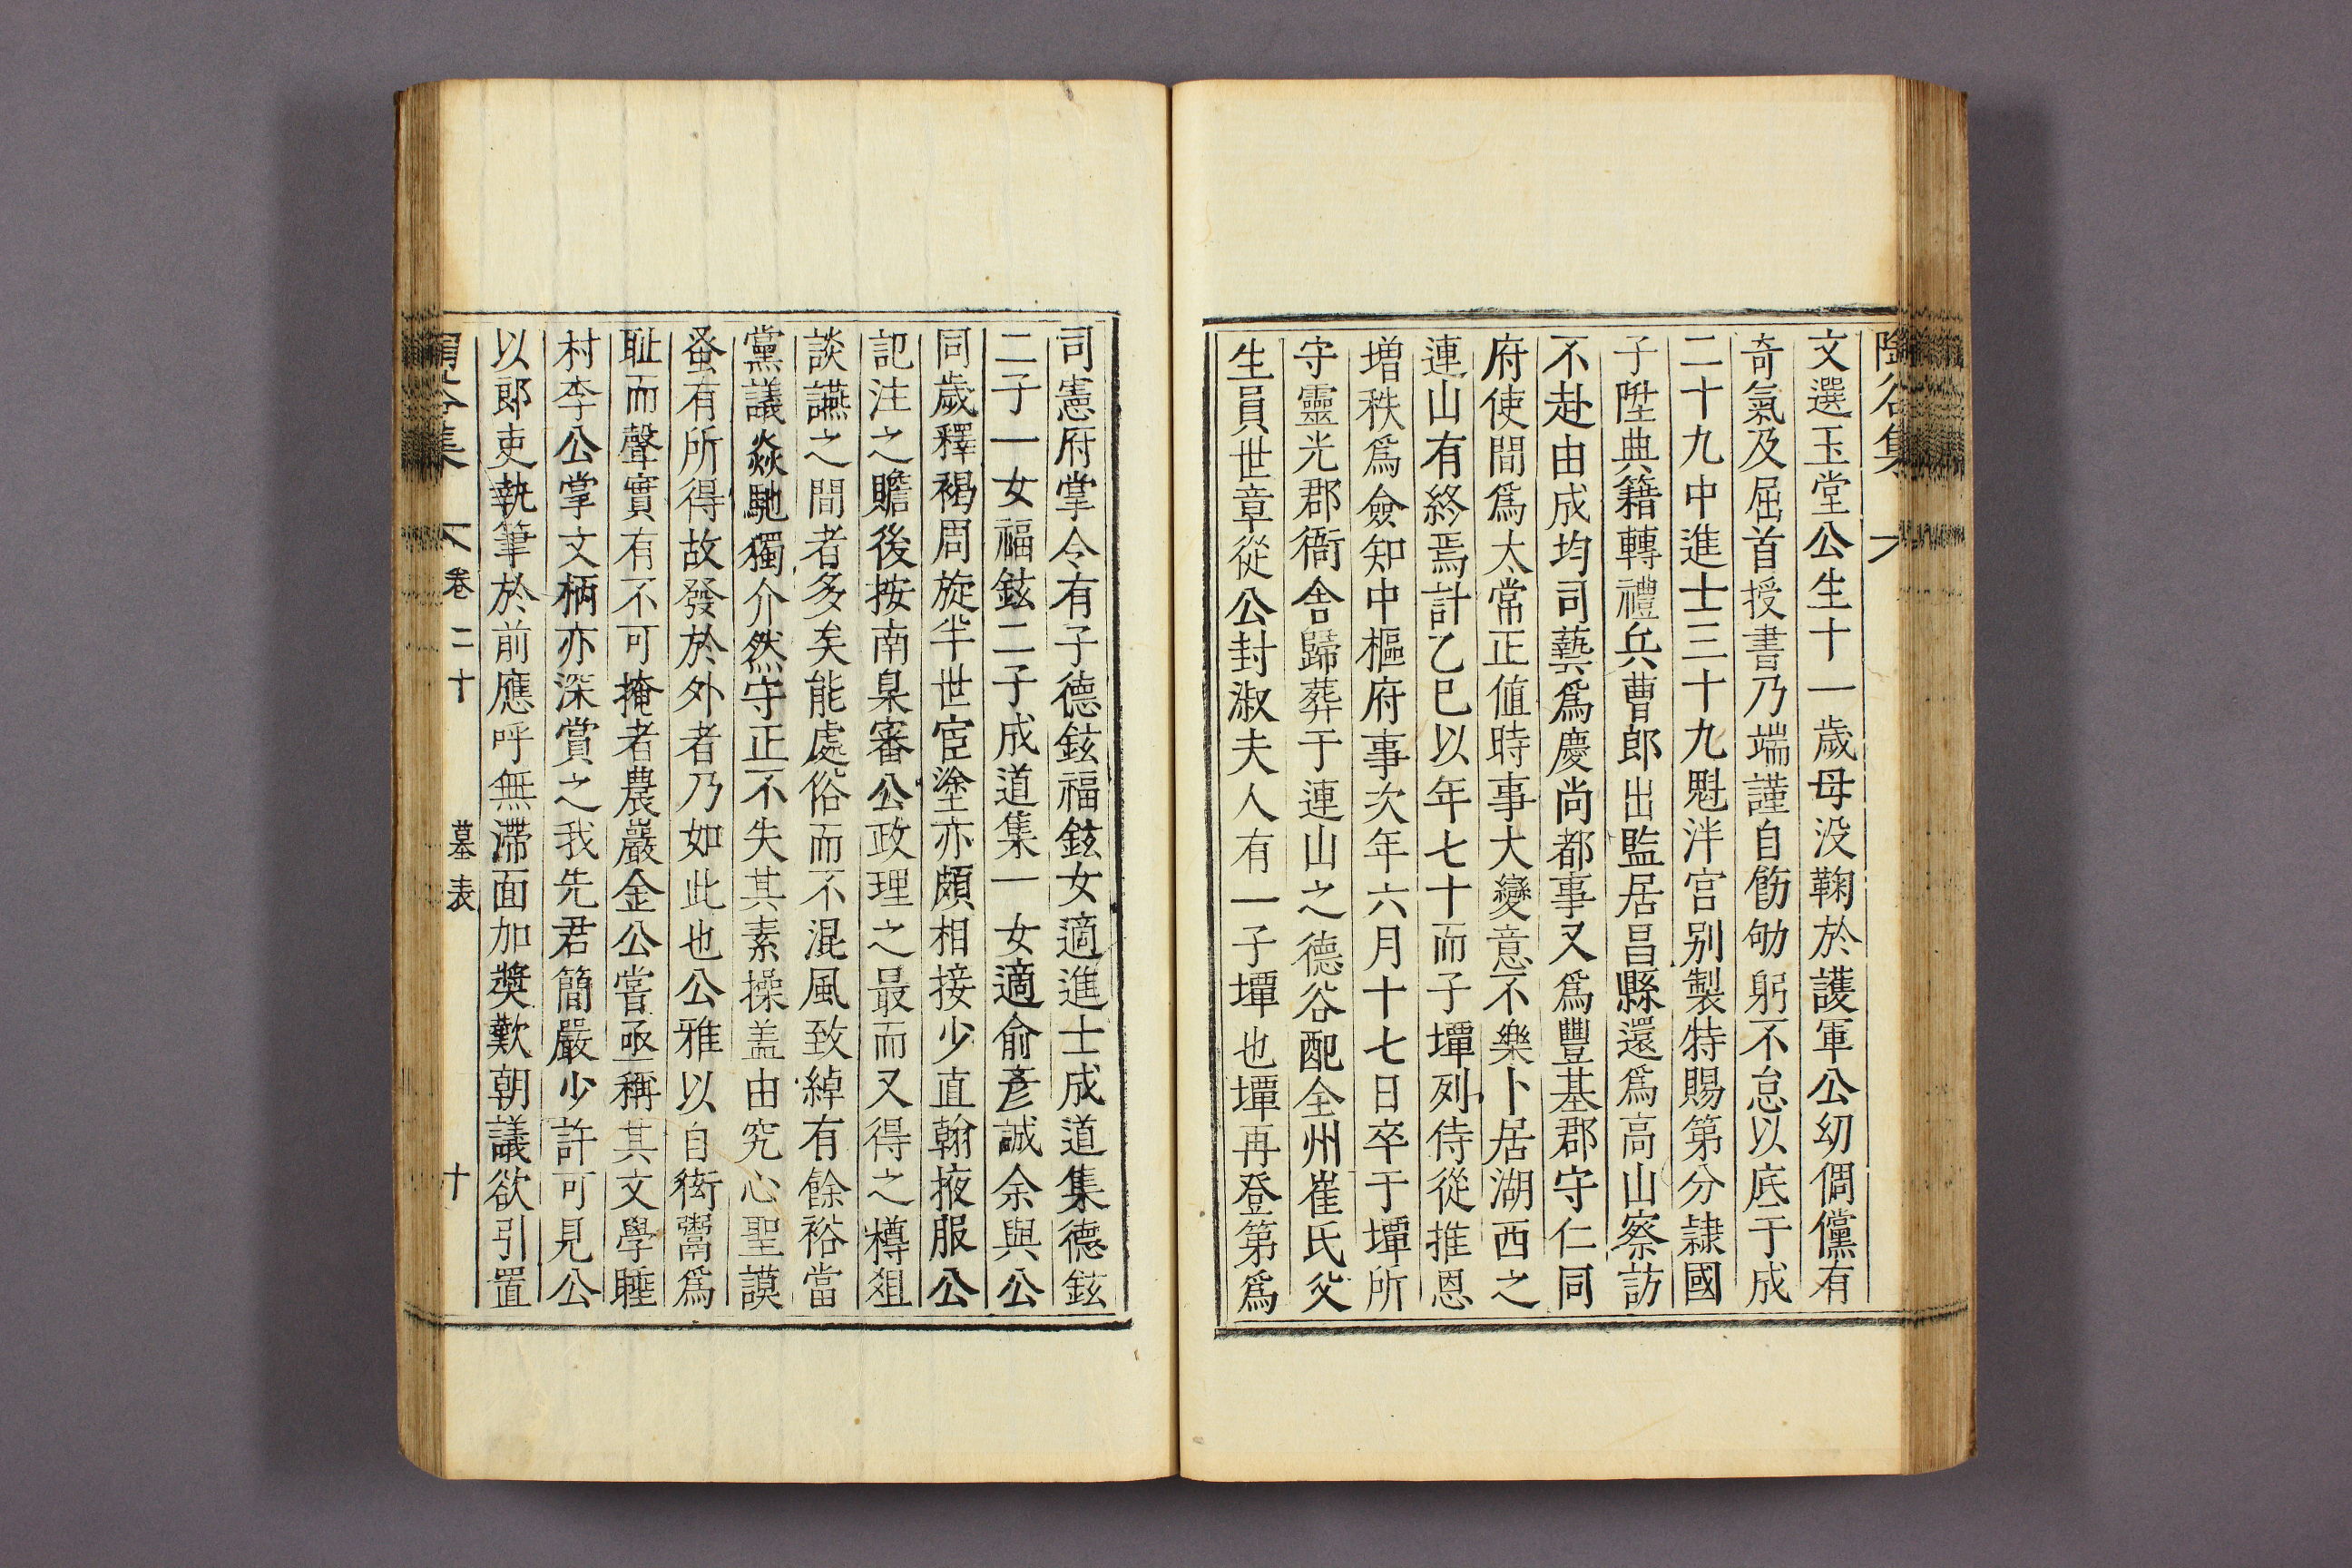 陶谷集
文選玉堂公生十一歲母没鞠於護軍公幼倜儻有
奇氣及屈首授書乃端謹自飭劬躬不怠以底于成
二十九中進士三十九魁泮宫别製特賜第分隷國
子陞典籍轉禮兵曹郎出監居昌縣還爲高山察訪
不赴由成均司藝爲慶尚都事又爲豐基郡守仁同
府使間爲太常正値時事大變意不樂卜居湖西之
連山有終焉計乙巳以年七十而子墠列侍從推恩
增秩爲僉知中樞府事次年六月十七日卒于墠所
守靈光郡衙舎歸葬于連山之德谷配全州崔氏父
生員世章從公封淑夫人有一子墠也墠再登第爲
司憲府掌令有子德鉉福鉉女適進士成道集德鉉
二子一女福鉉二子成道集一女適俞彥誠余與公
同歲釋褐周旋半世宦塗亦頗相接少直翰掖服公
記注之贍後按南臬審公政理之最而又得之樽俎
談讌之間者多矣能處俗而不混風致綽有餘裕當
黨議焱馳獨介然守正不失其素操盖由究心聖謨
蚤有所得故發於外者乃如此也公雅以自衒鬻爲
耻而聲實有不可掩者農巖金公嘗亟稱其文學睡
村李公掌文柄亦深賞之我先君簡嚴少許可見公
以郎吏執筆於前應呼無滯面加奬歎朝議欲引置
陶谷集 卷二十 墓表 十